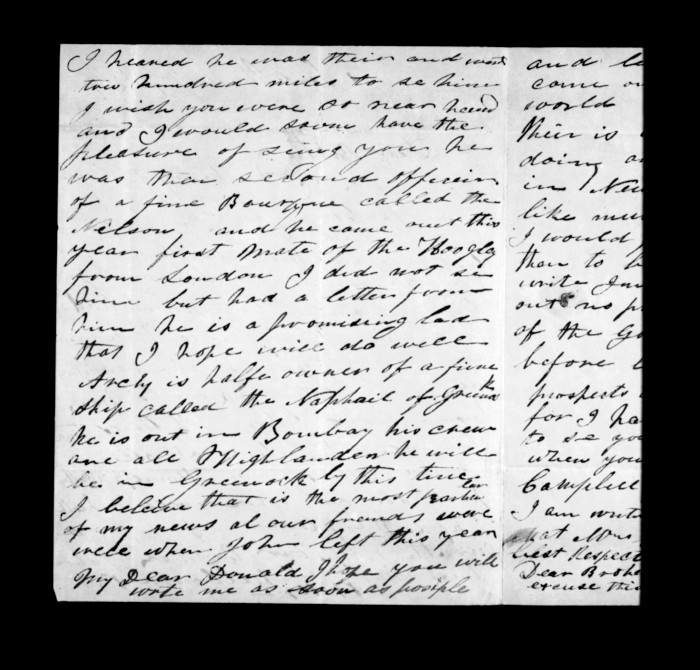 I heared he was their and went
two hundred miles to se him
I wish you were so near heard
and I would soone have the
pleasure of seing you he
was then second officer
of a fine called the
Nelson, and he came out this
year first Mate of the Hoogley
from London I did not se
him but had a letter from
him he is a promising lad
that I hope will do well
Archy is halfe owner of a fine
Ship called the of Greenk
he is out in Bombay his crew
are all Highlander he will
be in Greenock by this time
I beleive that is the most
of my news al our freands were
well when John left this year
My Dear Donald I hope you will
wrote me as soon as posiple
and
come
world
their is
doing
in
like
I would
than to
write
out no
of the
before
prospects
for I ha
to se you
when you
Campbell
I am
that Mrs
best Respect
Dear Broth
excuse this